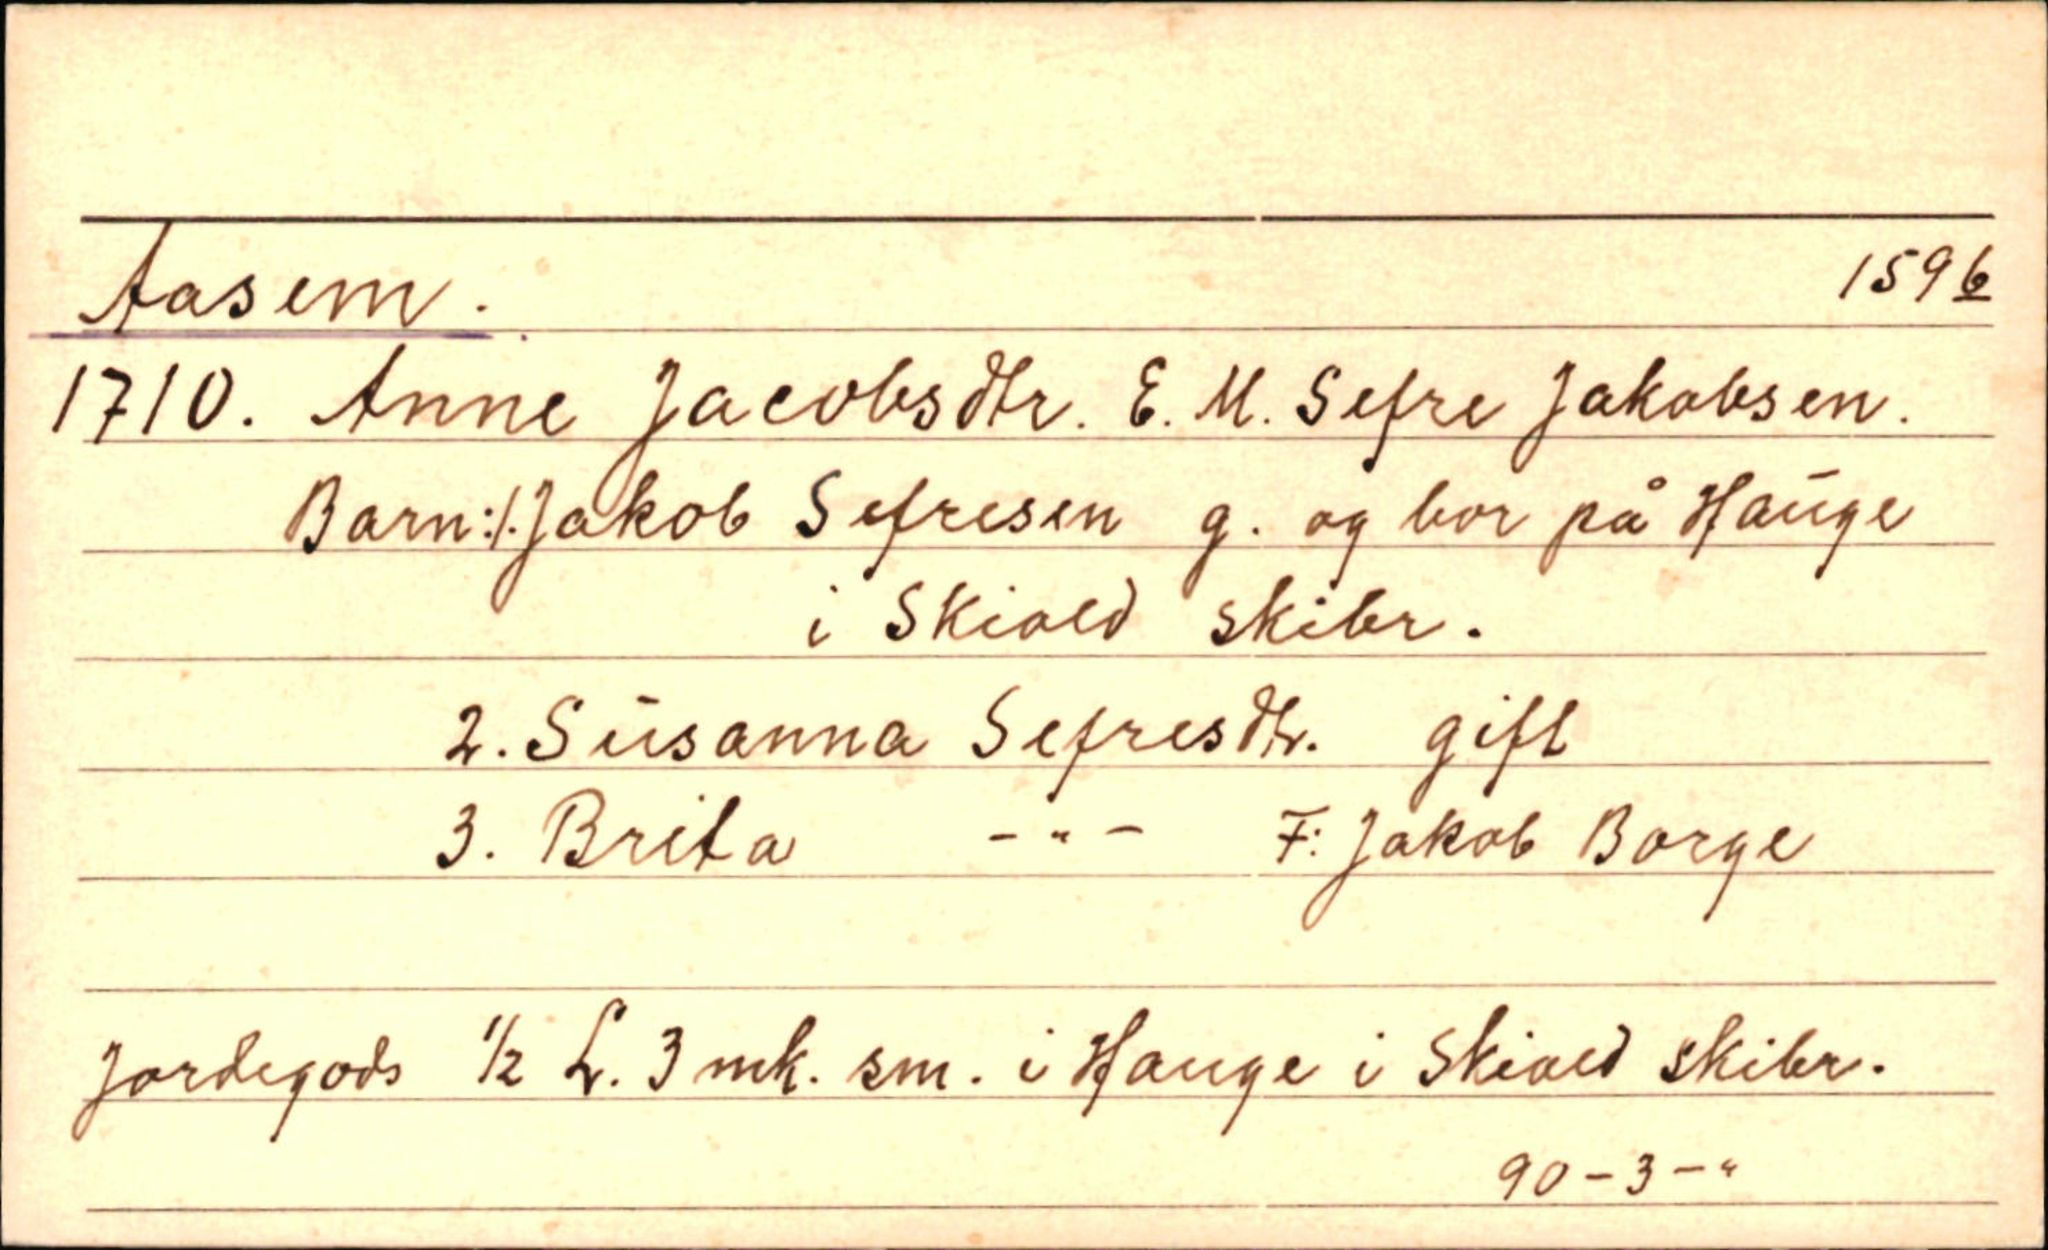 Aasem. 159b
1710. Anne Jacobsdtr. E. M. Sefre Jakobsen.
Barn: 1. Jakob Sefresen g. og bor på Hauge
i Skiold skibr.
2. Susanna Sefresdtr. gift
3. Brita -"- F: Jakob Borge
Jordegods 1/2 L. 3 mk. sm. i Hauge i Skiold skibr.
90-3-"